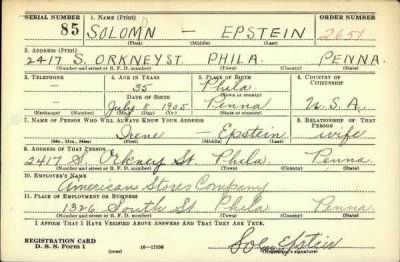 SERIAL NUMBER 1. NAME (Print) ORDER NUMBER
85 SOLOMN — EPSTEIN 2651
(First) (Middle) (Last)
2. ADDRESS (Print)
2417 S. ORKNEY ST. PHILA. PENNA.
(Number and street or R. F. D. number) (Town) (County) (State)
3. TELEPHONE 4. AGE IN YEARS 5. PLACE OF BIRTH 6. COUNTRY OF CITIZENSHIP
— 35 Phila
DATE OF BIRTH (Town or county)
— July 8 1905 Penna U.S.A.
(Exchange) (Number) (Mo.) (Day) (Yr.) (State or country)
7. NAME OF PERSON WHO WILL ALWAYS KNOW YOUR ADDRESS 8. RELATIONSHIP OF THAT PERSON
Irene — Epstein wife
(Mr., Mrs., Miss) (First) (Middle) (Last)
9. ADDRESS OF THAT PERSON
2417 S. Orkney St. Phila. Penna
(Number and street or R. F. D. number) (Town) (County) (State)
10. EMPLOYER'S NAME
American Stores Company
11. PLACE OF EMPLOYMENT OR BUSINESS
1326 South St Phila Penna
(Number and street or R. F. D. number) (Town) (County) (State)
I AFFIRM THAT I HAVE VERIFIED ABOVE ANSWERS AND THAT THEY ARE TRUE.
REGISTRATION CARD
D. S. S. Form 1 (over) 16—17105 Sol Epstein